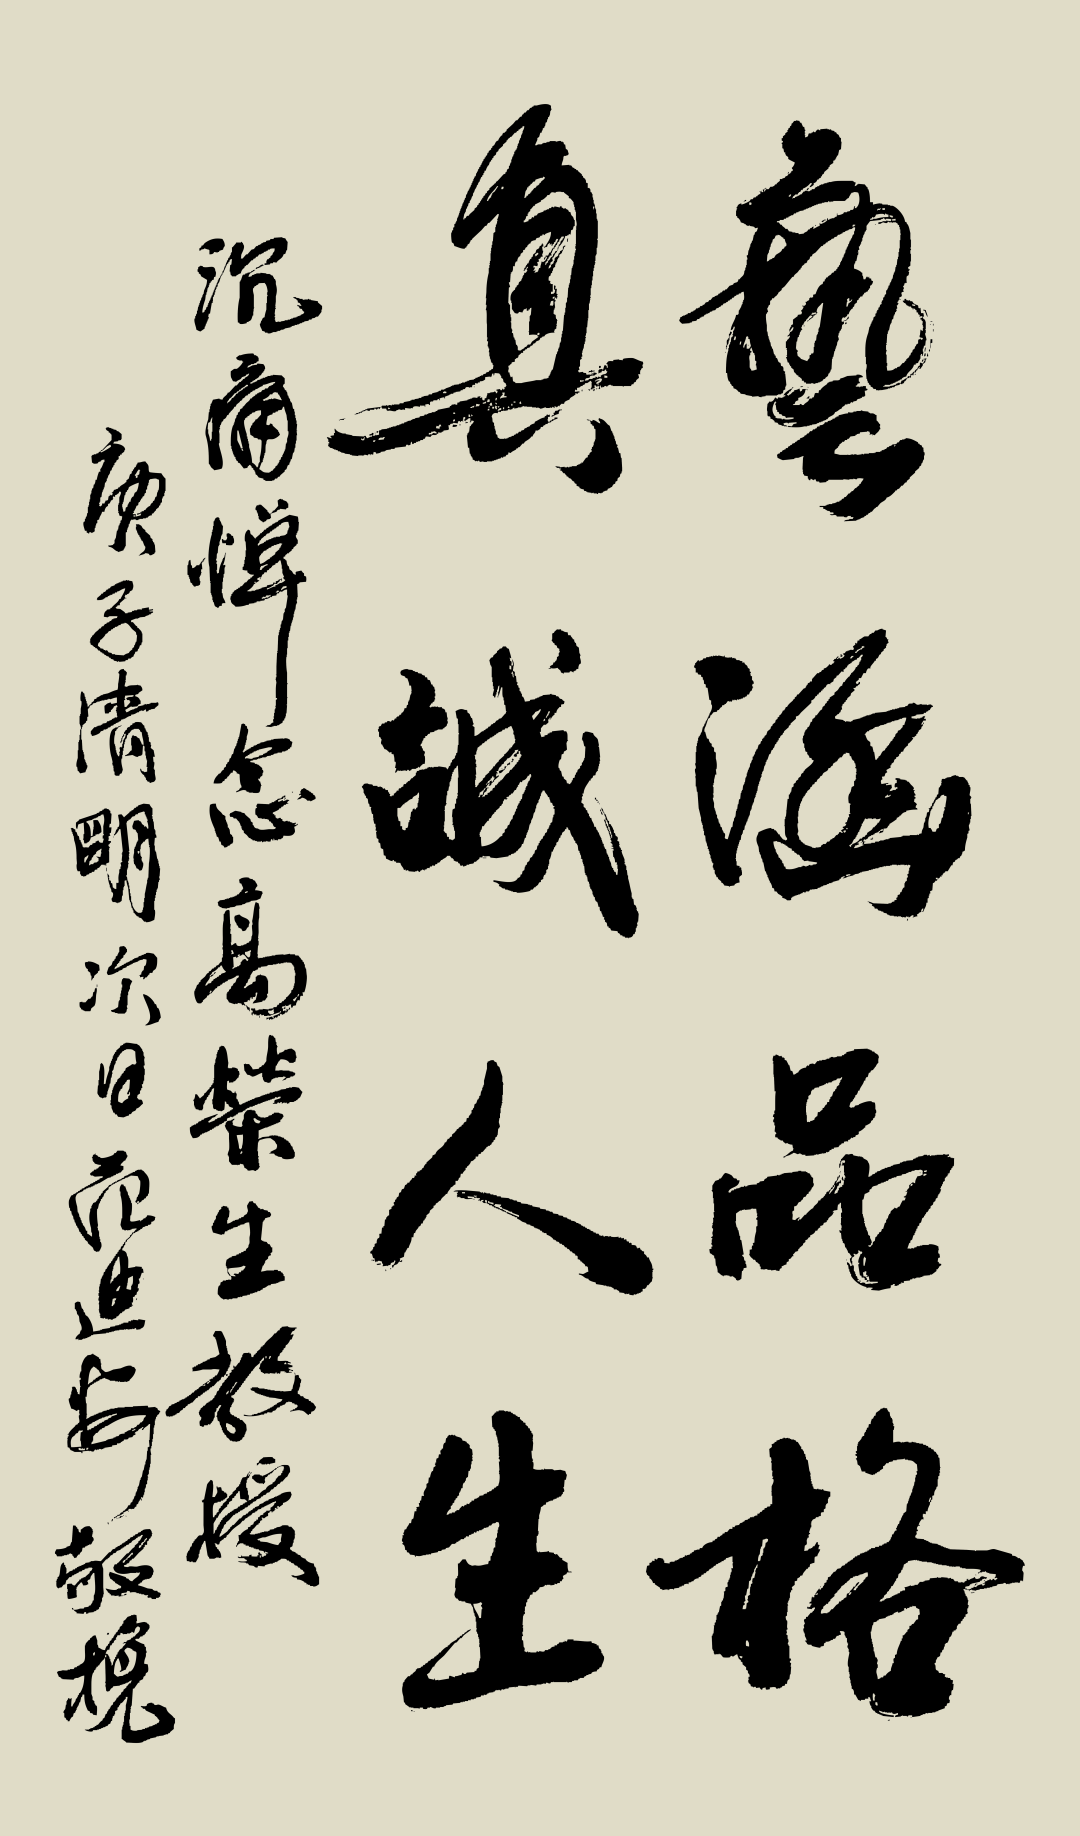 藝涵品格
真誠人生
沉痛悼念高榮生教授
庚子清明次日范迪安敬挽